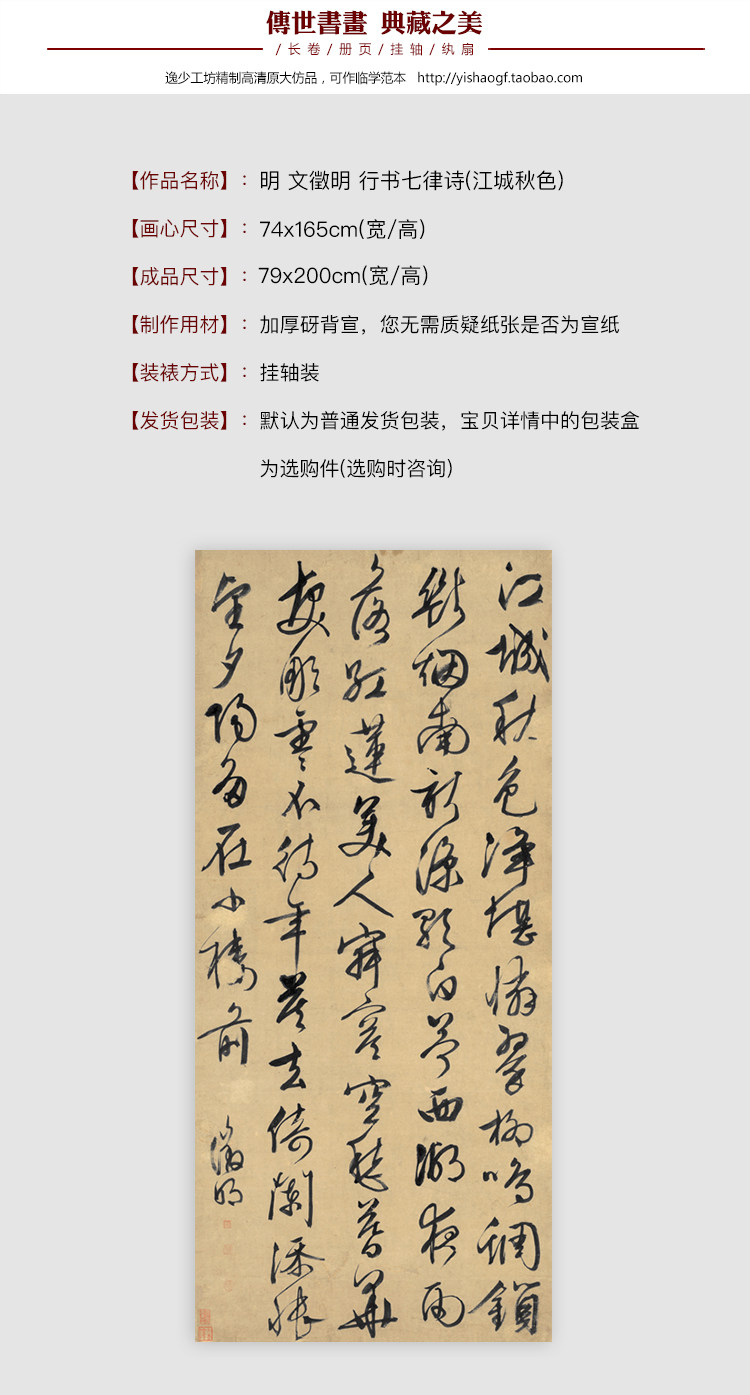 傳世書畫 典藏之美
/长卷/册页/挂轴/纨扇
逸少工坊精制高清原大仿品，可作临学范本 http://yishaogf.taobao.com
【作品名称】：明 文徵明 行书七律诗(江城秋色)
【画心尺寸】：74x165cm(宽/高)
【成品尺寸】：79x200cm(宽/高)
【制作用材】：加厚砑背宣，您无需质疑纸张是否为宣纸
【装裱方式】：挂轴装
【发货包装】：默认为普通发货包装，宝贝详情中的包装盒
为选购件(选购时咨询)
江城秋色净堪憐翠柳鳴蜩鎖
斷烟南新涼歌白苧西湖夜雨
落紅蓮美人寂寞空愁暮華
髮凋零不待年莫去倚闌添悵
望夕陽多在小橋前
徵明